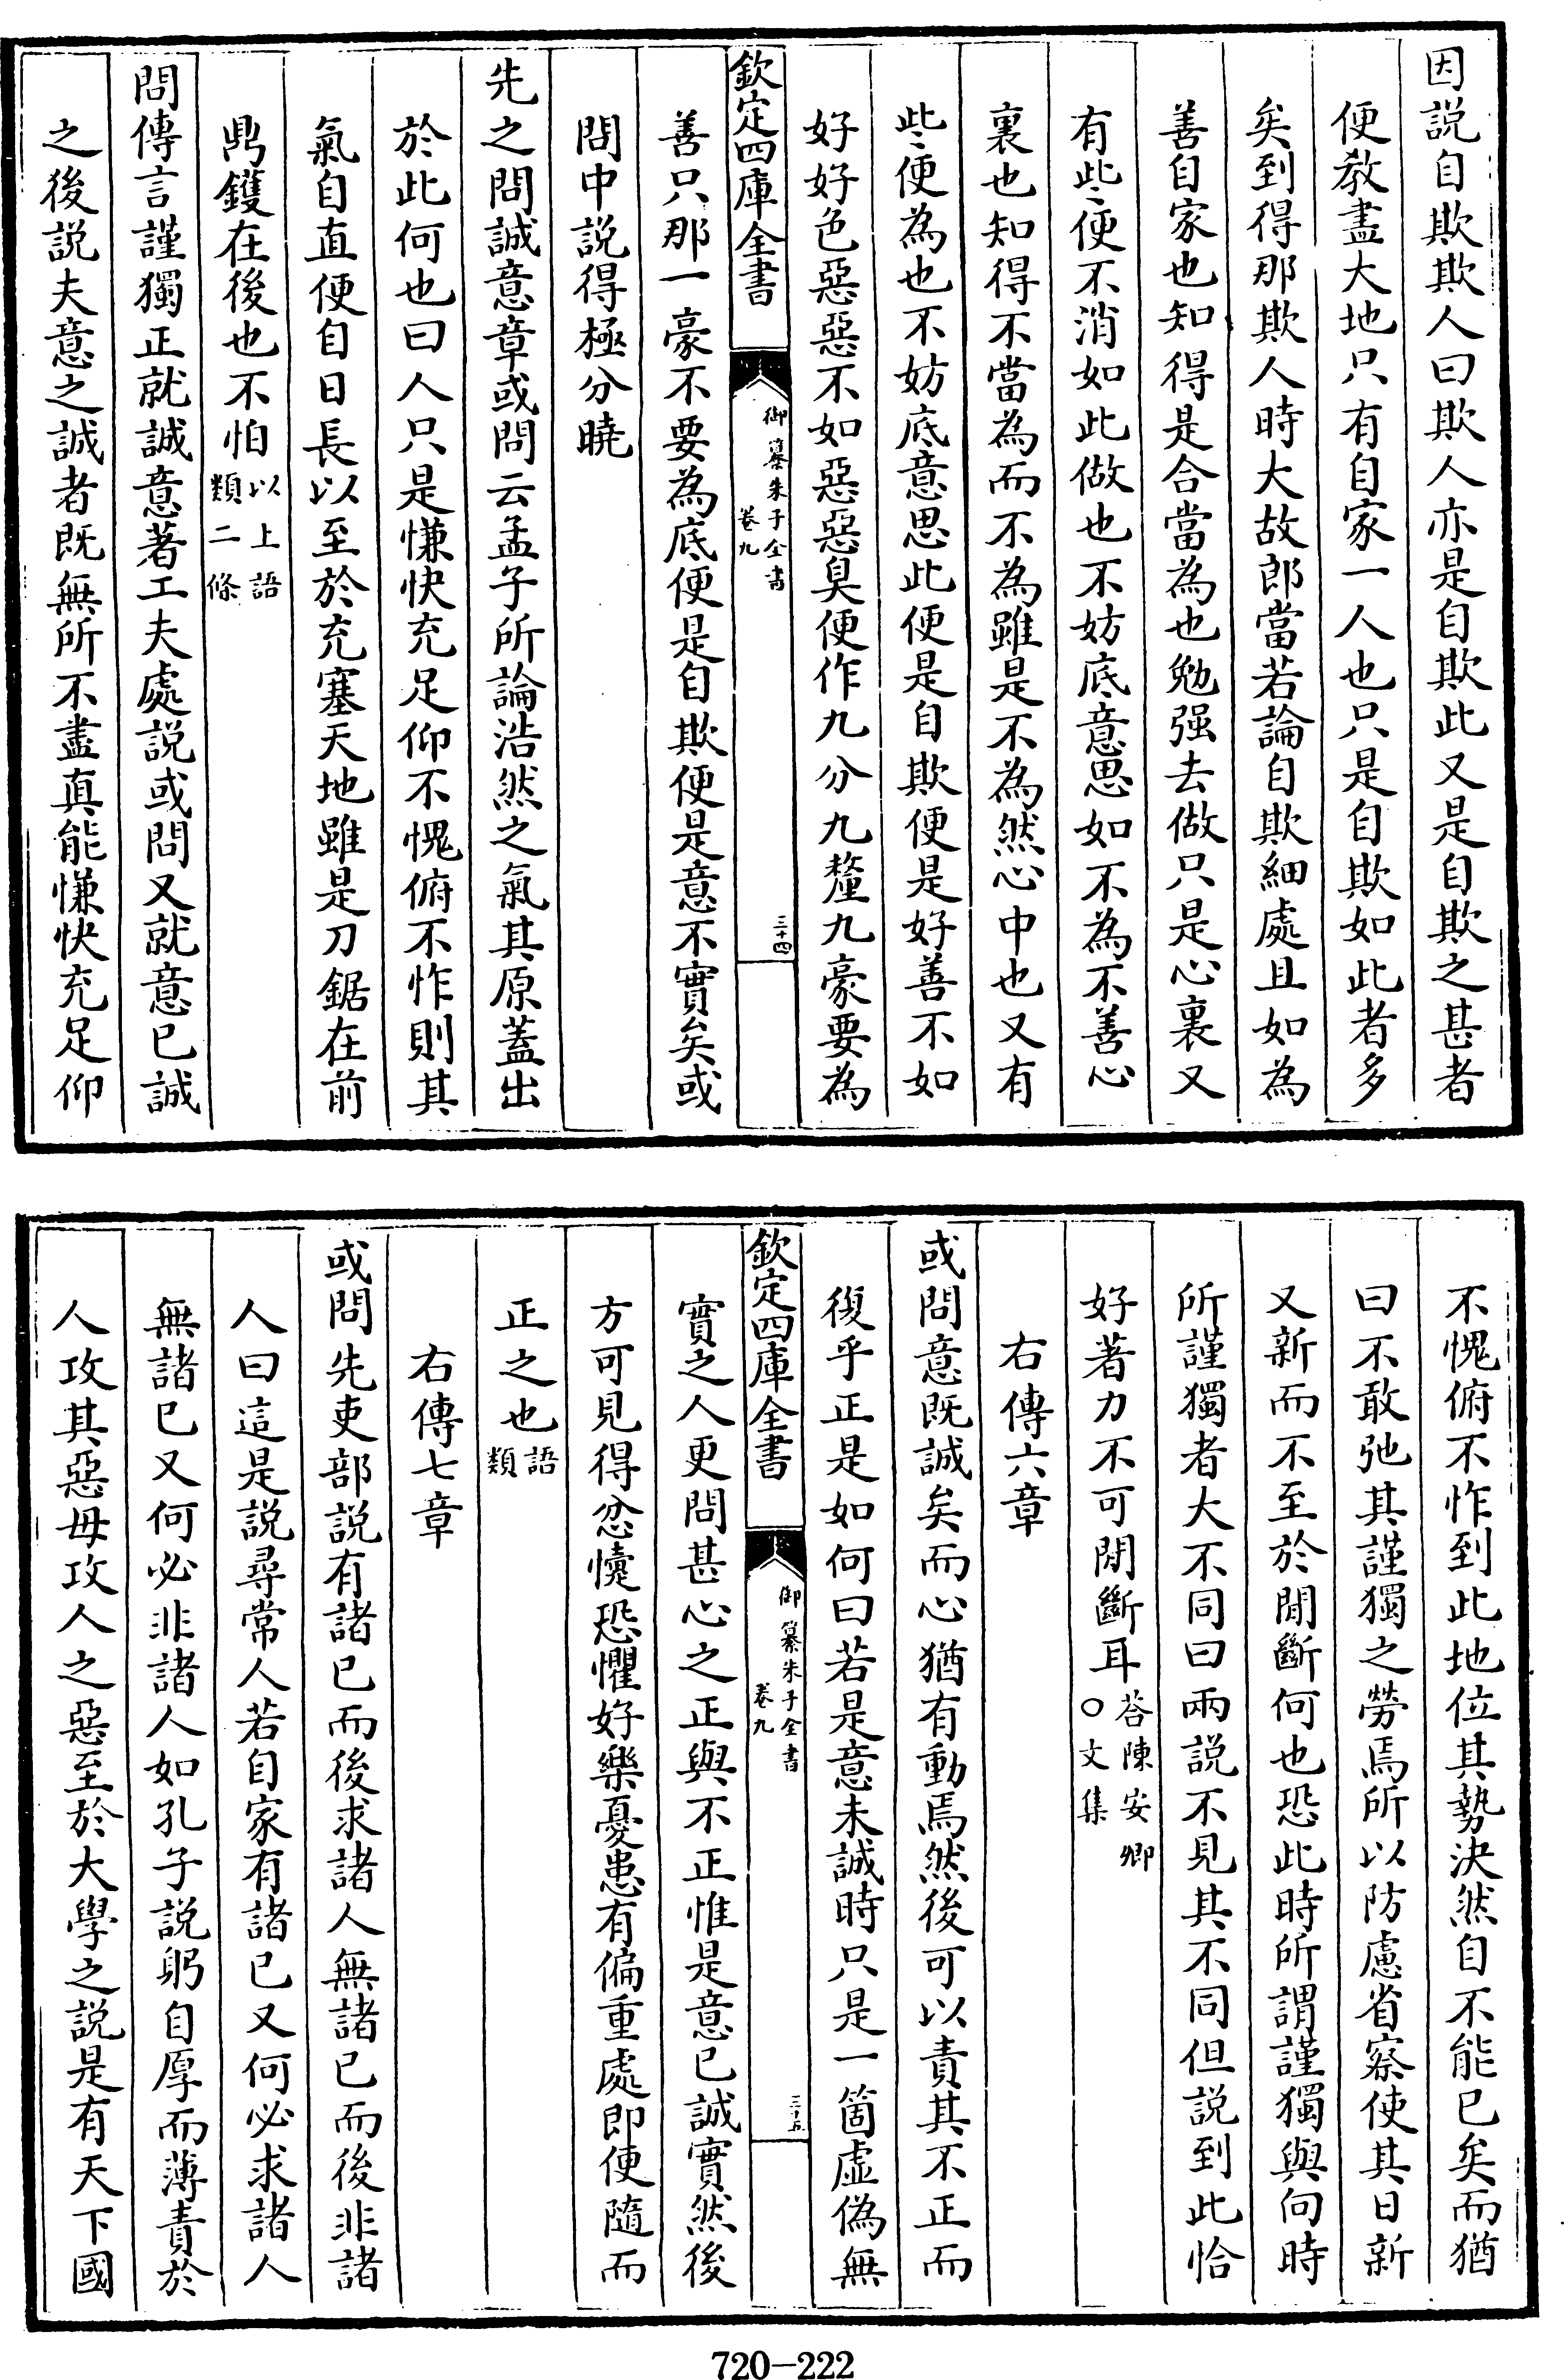 因説自欺欺人曰欺人亦是自欺此又是自欺之甚者
便教盡大地只有自家一人也只是自欺如此者多
矣到得那欺人時大故郎當若論自欺細處且如為
善自家也知得是合當為也勉强去做只是心裏又
有些便不消如此做也不妨底意思如不為不善心
裏也知得不當為而不為雖是不為然心中也又有
些便為也不妨底意思此便是自欺便是好善不如
好好色惡惡不如惡惡臭便作九分九釐九豪要為
欽定四庫全書
御纂朱子全書
卷九
三十四
善只那一豪不要為底便是自欺便是意不實矣或
問中説得極分曉
先之問誠意章或問云孟子所論浩然之氣其原蓋出
於此何也曰人只是慊快充足仰不愧俯不怍則其
氣自直便自日長以至於充塞天地雖是刀鋸在前
鼎鑊在後也不怕以上語類二條
問傳言謹獨正就誠意著工夫處説或問又就意已誠
之後説夫意之誠者既無所不盡真能慊快充足仰
不愧俯不怍到此地位其勢決然自不能已矣而猶
曰不敢弛其謹獨之勞焉所以防慮省察使其日新
又新而不至於閒斷何也恐此時所謂謹獨與向時
所謹獨者大不同曰兩説不見其不同但説到此恰
好著力不可閒斷耳答陳安卿○文集
右傳六章
或問意既誠矣而心猶有動焉然後可以責其不正而
復乎正是如何曰若是意未誠時只是一箇虛偽無
欽定四庫全書
御纂朱子全書
卷九
三十五
實之人更問甚心之正與不正惟是意已誠實然後
方可見得忿懥恐懼好樂憂患有偏重處即便隨而
正之也語類
右傳七章
或問先吏部説有諸已而後求諸人無諸已而後非諸
人曰這是説尋常人若自家有諸已又何必求諸人
無諸已又何必非諸人如孔子説躬自厚而薄責於
人攻其惡毋攻人之惡至於大學之説是有天下國
720-222